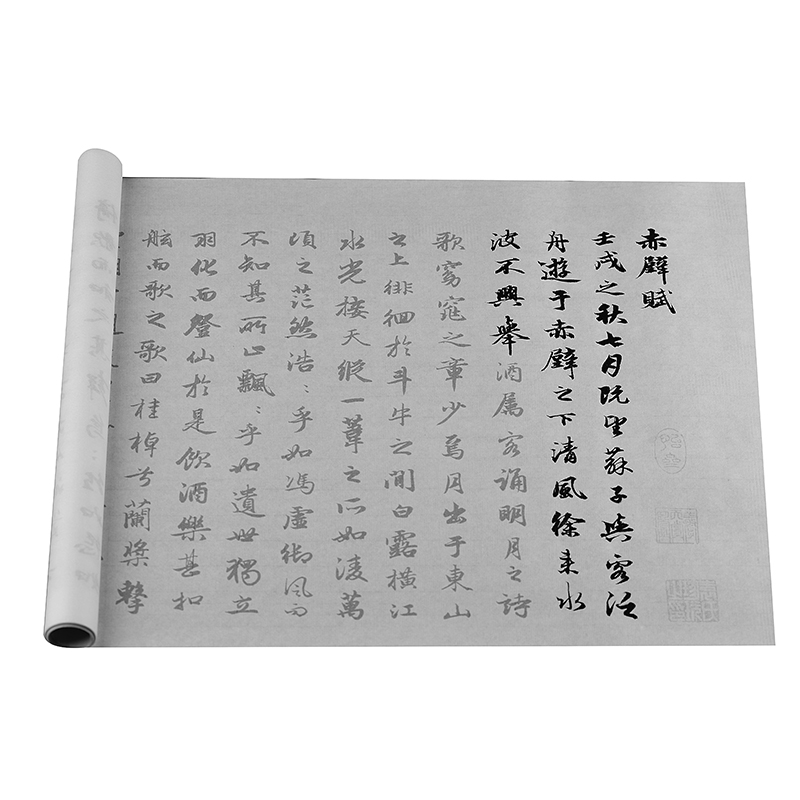 赤壁賦
壬戌之秋七月既望蘇子與客泛
舟遊于赤壁之下清風徐来水
波不興舉酒属客誦明月之詩
歌窈窕之章少焉月出于東山
之上徘徊於斗牛之間白露橫江
水光接天縱一葦之所如淩萬
頃之茫然浩:乎如馮虛御風而
不知其所止飄:乎如遺世獨立
羽化而登仙於是飲酒樂甚扣
舷而歌之歌曰桂棹兮蘭槳擊